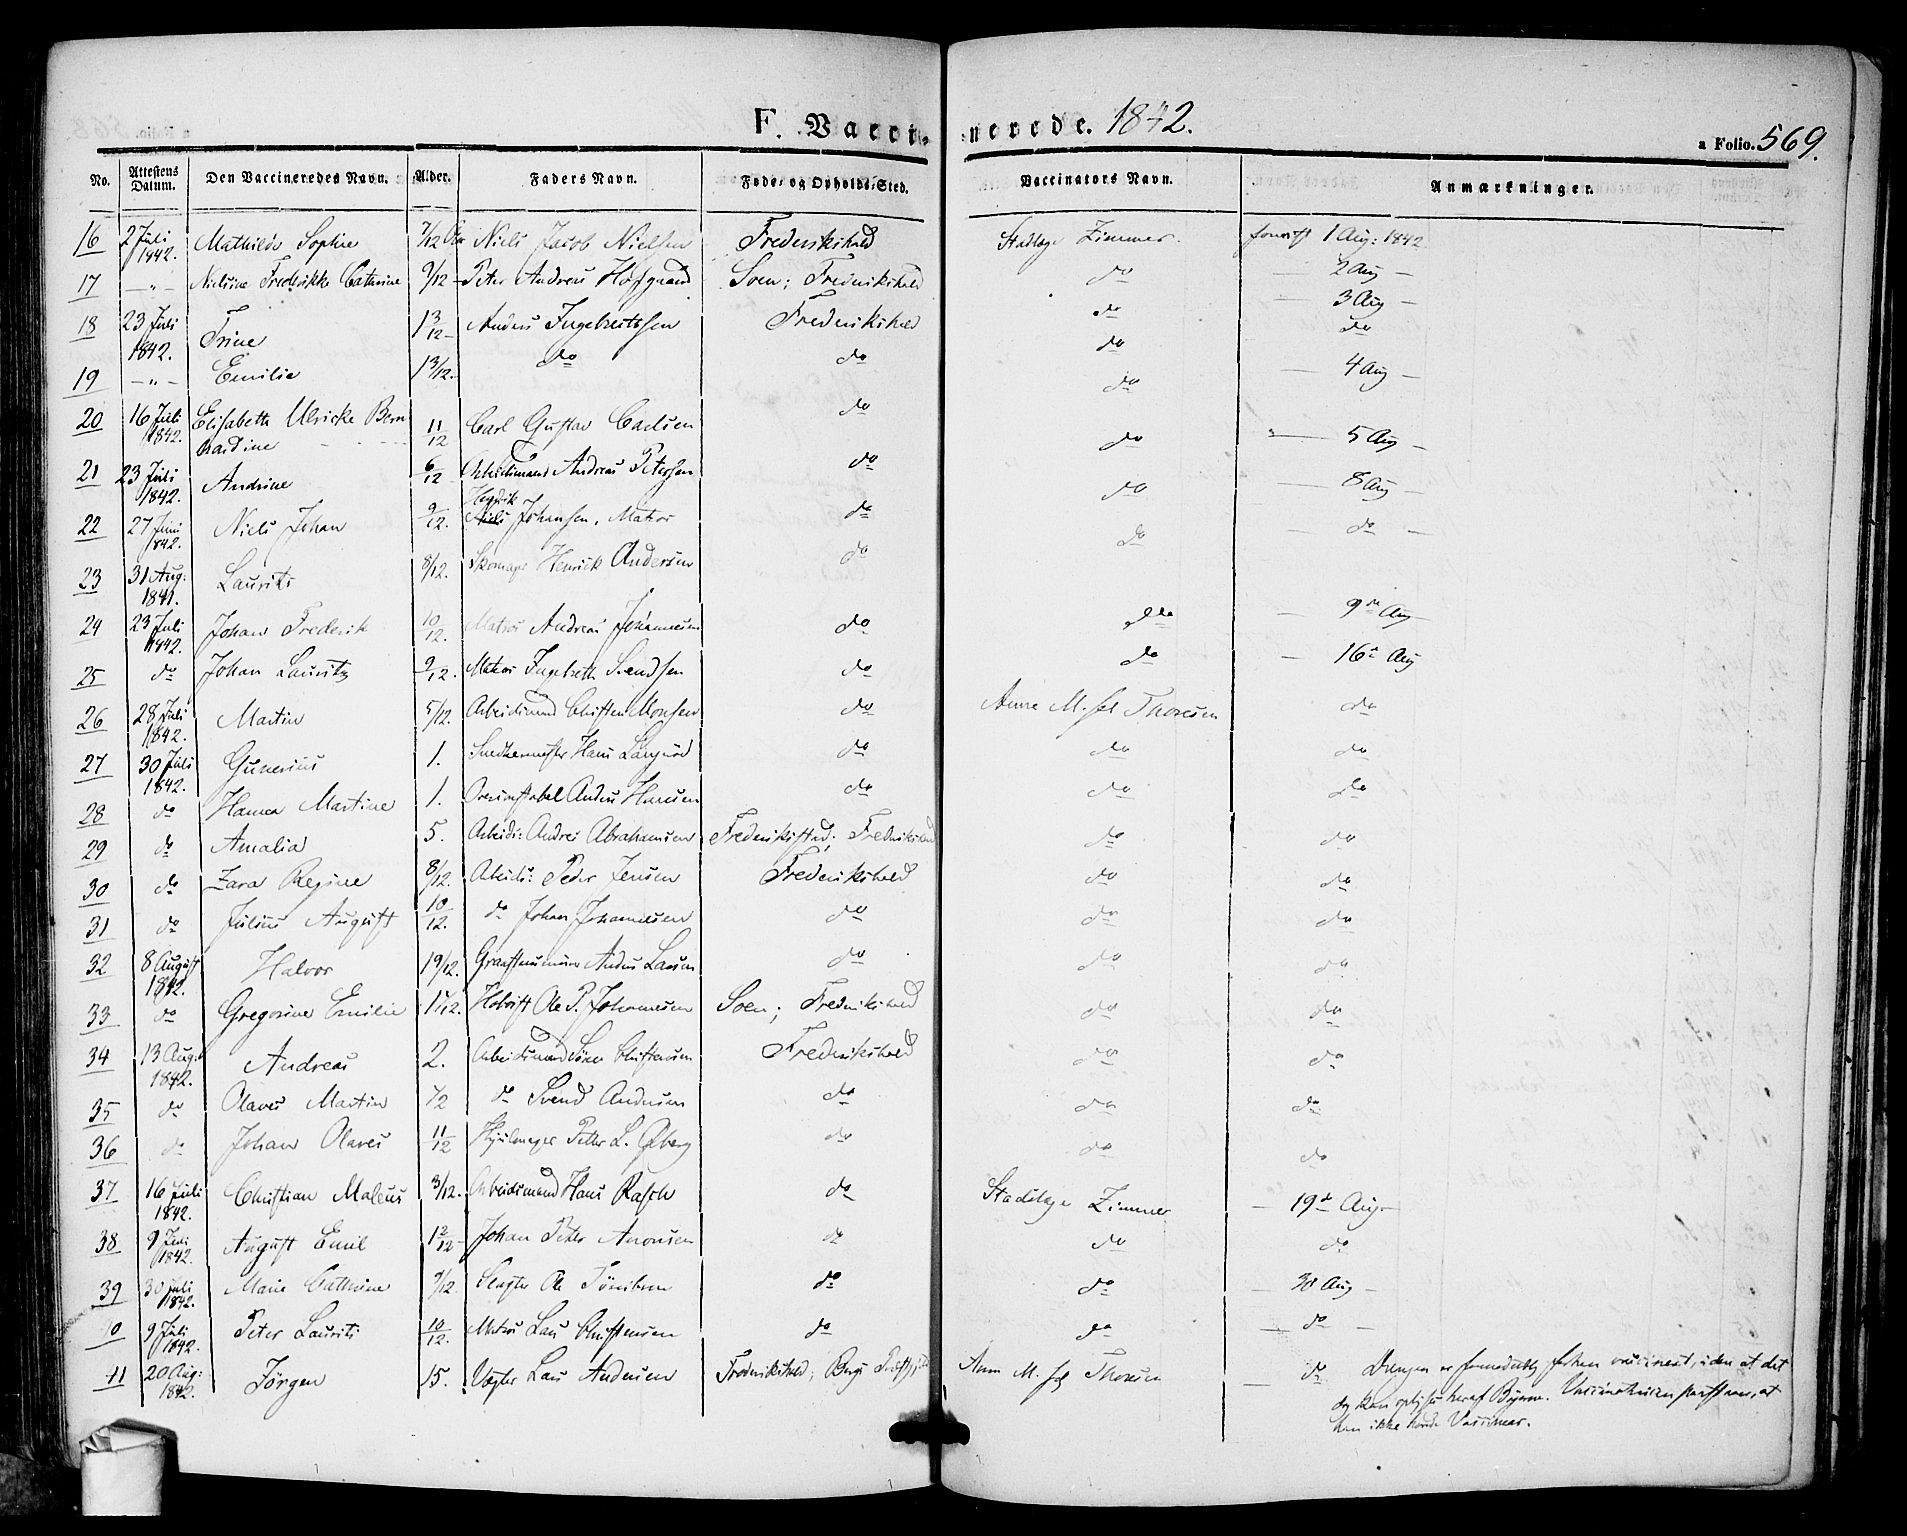 F. Vacci- nerede. 1842.
a Folio. 569.
No. Attestens Datum. Den Vaccineredes Navn. Alder. Faders Navn. Føde- og Opholds-Sted. Vaccinators Navn. Anmærkninger.
16 2 Juli 1842. Mathilde Sophie 7/12 Niels Jacob Nielsen Frederikshald Stadslæge Zimmer. 1 Aug: 1842
17 — " — Nielsine Frederikke Cathrine 9/12 Peter Andreas Hofgaard Soen; Frederikshald do — 2 Aug —
18 23 Juli 1842. Trine 1 3/12 Anders Ingebretsen Frederikshald do — 3 Aug —
19 — " — Emilie 1 3/12 do do do do
20 16 Juli 1842. Elisabeth Ulricke Bernhardine 11/12 Carl Gustav Carlsen do do — 4 Aug —
21 23 Juli 1842. Andrine 6/12 Arbeidsmand Andreas Petersen do do — 5 Aug —
22 27 Juni 1842. Niels Johan 9/12. Hendrik Johansen, Matros do do — 8 Aug —
23 31 Aug: 1841. Laurits 8/12. Skomager Henrick Andersen do do — do —
24 23 Juli 1842. Johan Frederik 10/12. Matros Andreas Johannesen do do — 9de Aug —
25 do Johan Lauritz 9/12. Matros Ingebreth Svendsen do do — 16de Aug
26 28 Juli 1842. Martin 5/12. Arbeidsmand Christen Monsen do Anne M. sal Thoresen do
27 30 Juli 1842. Gunerius 1. Snedkermester Hans Langerød do do do
28 do Hanna Martine 1. Anders Hansen do do do
29 do Amalia 5. Arbeids: Andres Abrahamsen Frederiksstad; Frederikshald do do
30 do Zara Regine 8/12. Arbeids: Peder Jensen Frederikshald do do
31 do Julius August 10/12. do Johan Johannesen do do do
32 8 August 1842. Halvor 1 9/12. Anders Larsen do do do
33 do Gregorine Emilie 1 1/12. Ole P. Johannesen Soen; Frederikshald do do
34 13 Aug: 1842. Andreas 2. Arbeidsmand Søren Christensen Frederikshald do do
35 do Olaves Martin 1/2 do Svend Andersen do do do
36 do Johan Olaves 11/12 Hjulmager Petter L. Øberg do do do
37 16 Juli 1842. Christian Maleus 3/12. Arbeidsmand Hans Rasch do Stadslæge Zimmer — 19de Aug —
38 9 Juli 1842. August Emil 1 2/12 Johan Peter Aronsen do do do
39 30 Juli 1842. Marie Cathrine 9/12. Slagter Ole Tønnesen do do — 30 Aug —
40 9 Juli 1842. Peter Laurits 10/12. Matros Lars Christensen do do — do —
41 20 Aug: 1842. Jørgen 15. Vægter Lars Andersen Frederikshald; Bergs Præstgjeld Anne M. sal Thoresen — do. Drengen er formodentlig forhen vaccineret, uden at det
dog kan oplyses heraf Byen. Vaccinatricen paastaar, at
han ikke havde Vacciner.